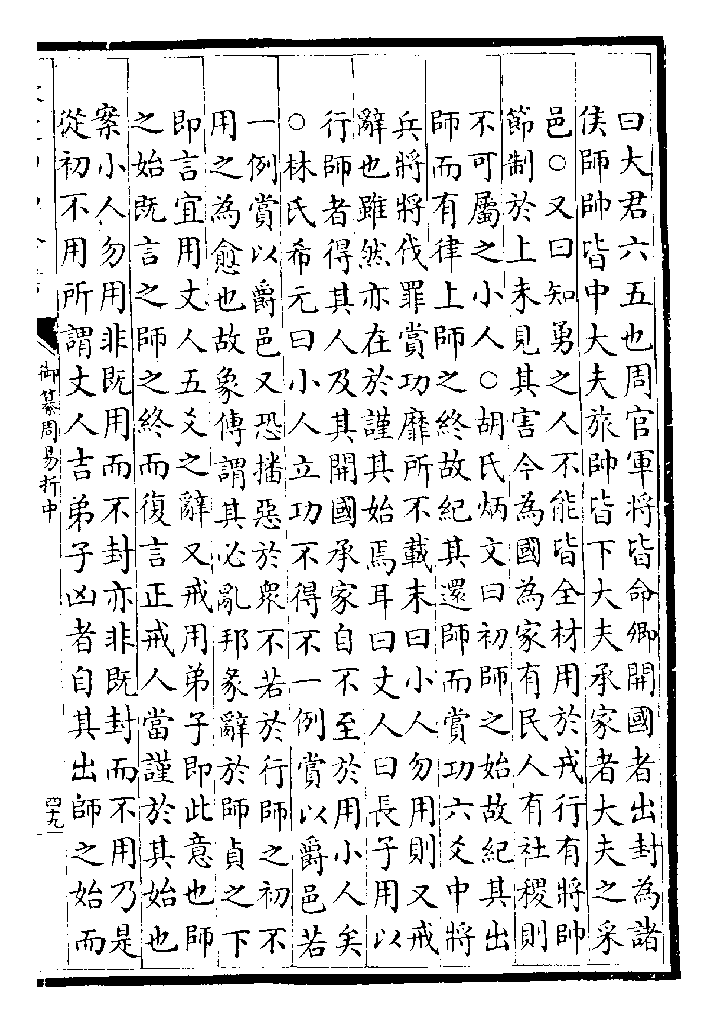 曰大君六五也周官軍將皆命卿開國者出封為諸
侯師帥皆中大夫旅帥皆下大夫承家者大夫之采
邑○又曰知勇之人不能皆全材用於戎行有將帥
節制於上未見其害今為國為家有民人有社稷則
不可屬之小人○胡氏炳文曰初師之始故紀其出
師而有律上師之終故紀其還師而賞功六爻中將
兵將將伐罪賞功靡所不載末曰小人勿用則又戒
辭也雖然亦在於謹其始焉耳曰丈人曰長子用以
行師者得其人及其開國承家自不至於用小人矣
○林氏希元曰小人立功不得不一例賞以爵邑若
一例賞以爵邑又恐播惡於衆不若於行師之初不
用之為愈也故象傳謂其必亂邦彖辭於師貞之下
即言宜用丈人五爻之辭又戒用弟子即此意也師
之始既言之師之終而復言正戒人當謹於其始也
案小人勿用非既用而不封亦非既封而不用乃是
從初不用所謂丈人吉弟子凶者自其出師之始而
御纂周易折中
四九